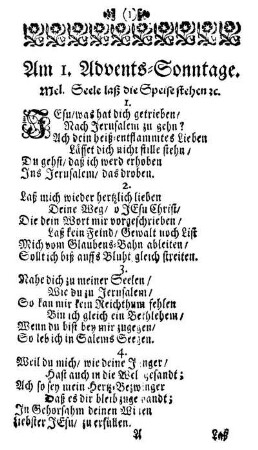 (1)
Am 1. Advents-Sonntage.
Mel. Seele laß die Speise stehen ꝛc.
1.
JEsu/was hat dich getrieben/
Nach Jerusalem zu gehn?
Ach dein heiß-entflammtes Lieben
Lässet dich nicht stille stehn/
Du gehst/ daß ich werd erhoben
Ins Jerusalem/ das droben.
2.
Laß mich wieder hertzlich lieben
Deine Weg/ o JEsu Christ/
Die dein Wort mir vorgeschrieben/
Laß kein Feind/ Gewalt noch List
Mich vom Glaubens-Bahn ableiten/
Sollt ich biß auffs Bluht gleich streiten.
3.
Nahe dich zu meiner Seelen/
Wie du zu Jerusalem/
So kan mir kein Reichthum fehlen
Bin ich gleich ein Bethlehem/
Wenn du bist bey mir zugegen/
So leb ich in Salems Seegen.
4.
Weil du mich/ wie deine Jünger/
Hast auch in die Welt gesandt;
Ach so sey mein Hertz-Bezwinger
Daß es dir bleib zugewandt;
In Gehorsahm deinen Willen
Liebster JEsu/ zu erfüllen.
A Laß